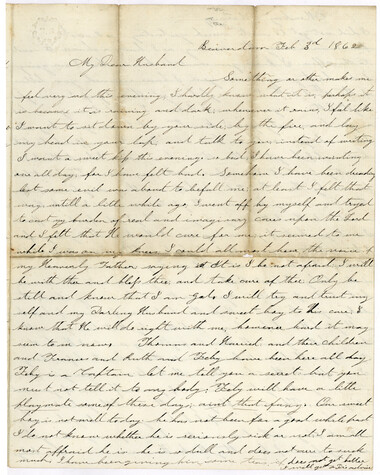 Feb 3d 1862
My Dear Husband
Something or other makes me
feel very sad this evening, I hardly know what it is, perhaps it
is because it is raining and dark, whenever it rains, I feel like
I want to set down by your side, by the fire, and lay
my head in your lap and talk to you instead of writing
I want a sweet kiss this evening so bad, I have been wanting
one all day, for I have felt bad. Somehow I have been dreading
lest some evil was about to befall me, at least I felt that
way, untill a little while ago, I went off by myself and tryed
to cast my burden of real and imaginary cares upon the Lord
and I felt that He would care for me, it seemed to me
while I was on my knees I could almost hear the voice of
my Heavenly Father saying It is I be not afraid I will
be with thee and bless thee, and take care of thee. Only be
still and know that I am God, I will try and trust my
self and my Darling Husband and sweet boy to his care, I
know that He will do right with me, however hard it may
seem to me now. Thomas and Harriet and their children
and and Ruth and have been here all day
is a Captain let me tell you a secret but you
must not tell it to any body, will have a little
playmate some of these days, aint that funny. Our sweet
boy is not well today, he has not been for a good while past
I do not know whether he is seriously sick or not, I am all
most afraid he is he is so dull and does not nurse to such
much. I have been giving him some if he does not get better